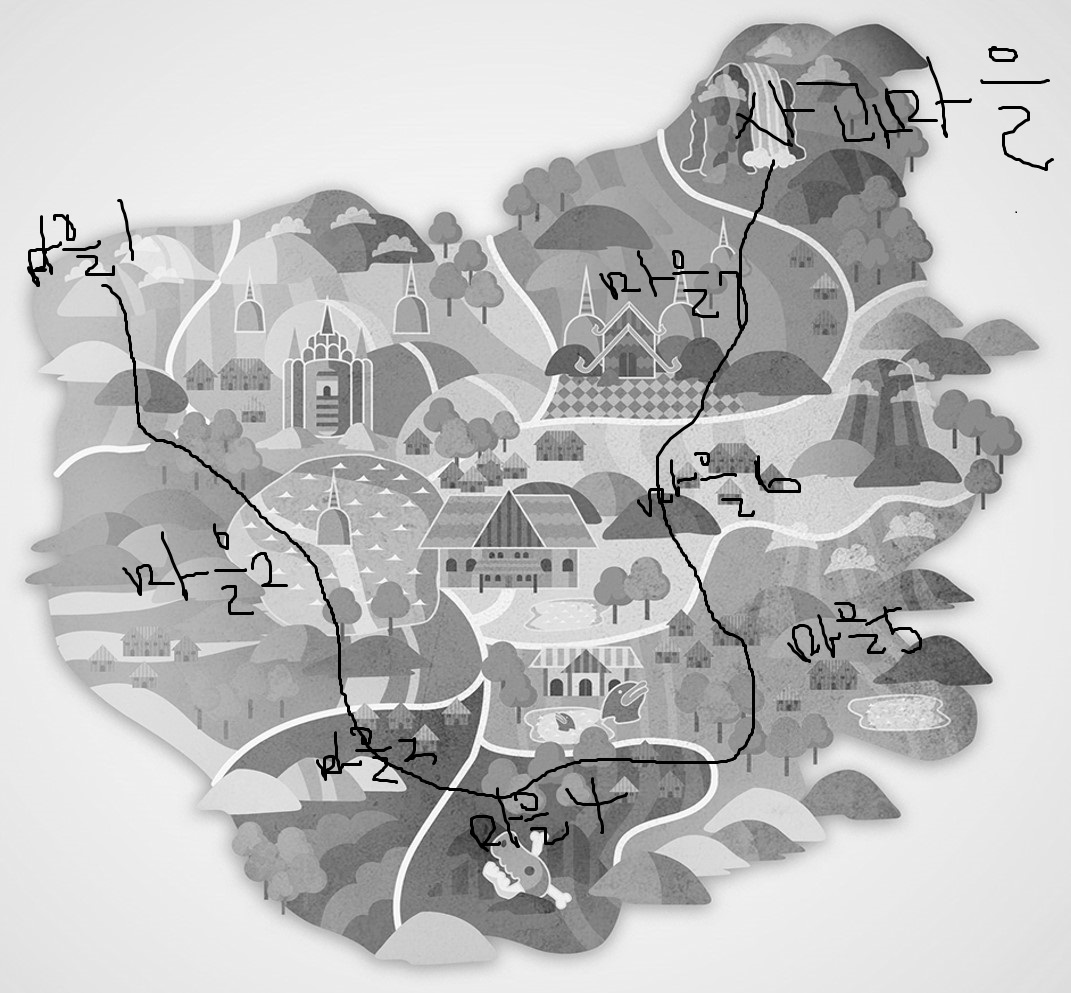 시크마을
마을1
마을7
마을6
마을2
마을5
마을3
마을4